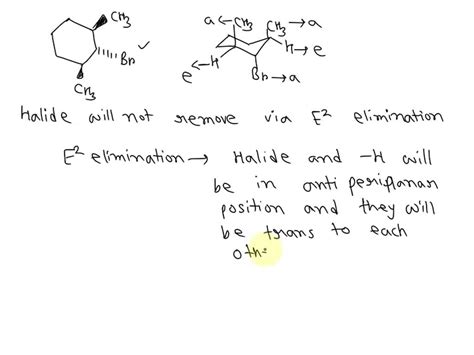 CH3
Br
CH3
a ← CH3 CH3 → a
H → e
e ← H
Br → a
Halide will not remove via E² elimination
E² elimination → Halide and -H will
be in anti periplanar
position and they will
be trans to each
oth